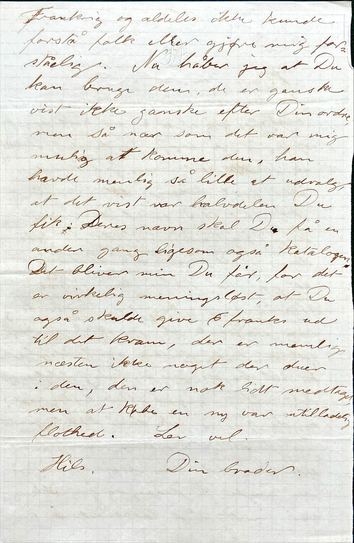 Frankrig og aldeles ikke kunde
forstå folk eller gjøre mig for-
ståelig. Nu håber jeg at Du
kan bruge dem, de er ganske
vist ikke ganske efter Din ordre
men så nær som det var mig
mulig at komme den, han
havde nemlig så lille et udvalg
at det vist var halvdelen Du
fik. Deres navn skal Du få en
anden gang ligesom også katalogen.
Det bliver min Du får, for det
er virkelig meningsløst, at Du
også skulde give 6 franks ud
til det kram, der er nemlig
næsten ikke noget der duer
i den, den er nok lidt medtaget
men at købe en ny var utilladelig
flothed. Lev vel.
Hils. Din broder.